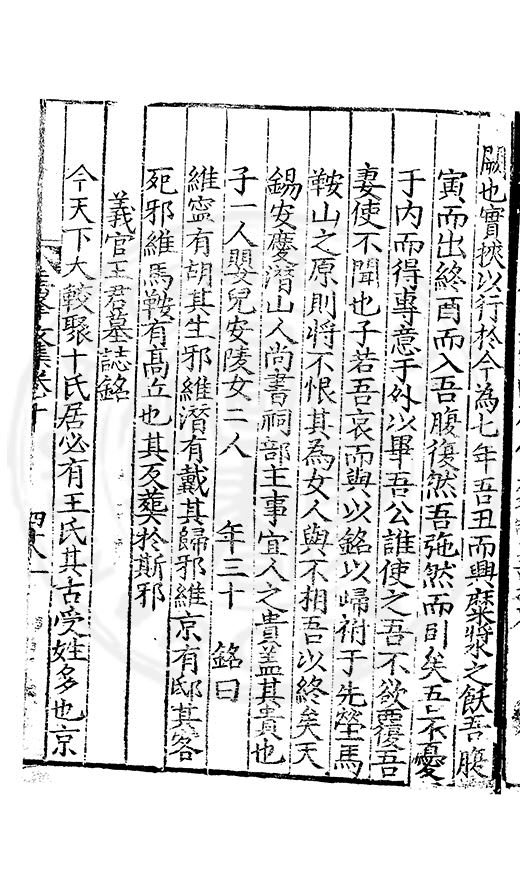 厥也實挾以行於今為七年吾丑而興糜漿之飫吾腹
寅而出終酉而入吾腹復然吾弛然而卧矣吾不憂
于内而得專意于外以畢吾公誰使之吾不欲覆吾
妻使不聞也子若吾哀而與以銘以歸祔于先塋馬
鞍山之原則將不恨其為女人與不相吾以終矣天
錫安慶潛山人尚書祠部主事宜人之貴盖其貴也
子一人嬰兒安陵女二人　年三十　銘曰
維寍有胡其生邪維潛有戴其歸邪維京有邸其客
死邪維馬鞍有髙丘也其又葬於斯邪
義官王君墓誌銘
今天下大較聚十氏居必有王氏其古受姓多也京